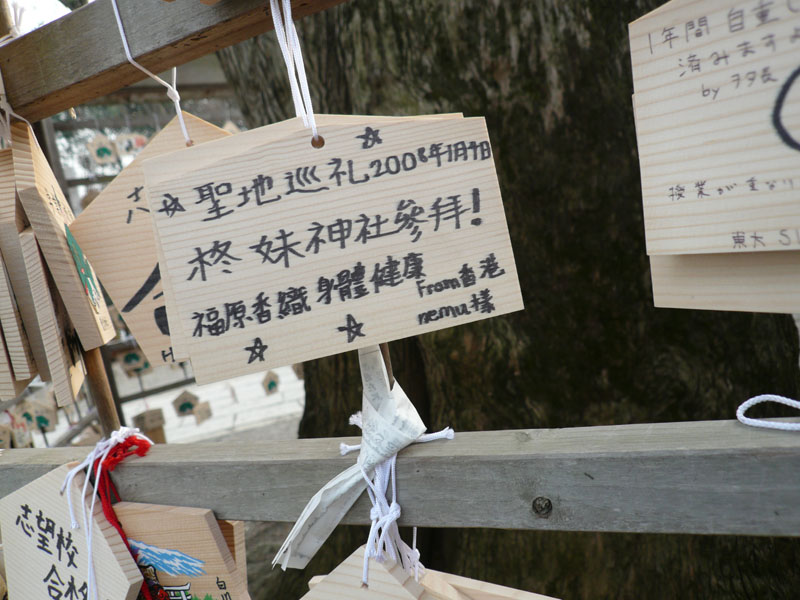 ☆聖地巡礼☆2008年1月4日
柊妹神社參拜!
福原香織 身體健康
From香港
nemu樣
☆ ☆
1年間 自重し
済みますよ
by ヲタ長
授業がまなり
東大
志望校
合格
白川